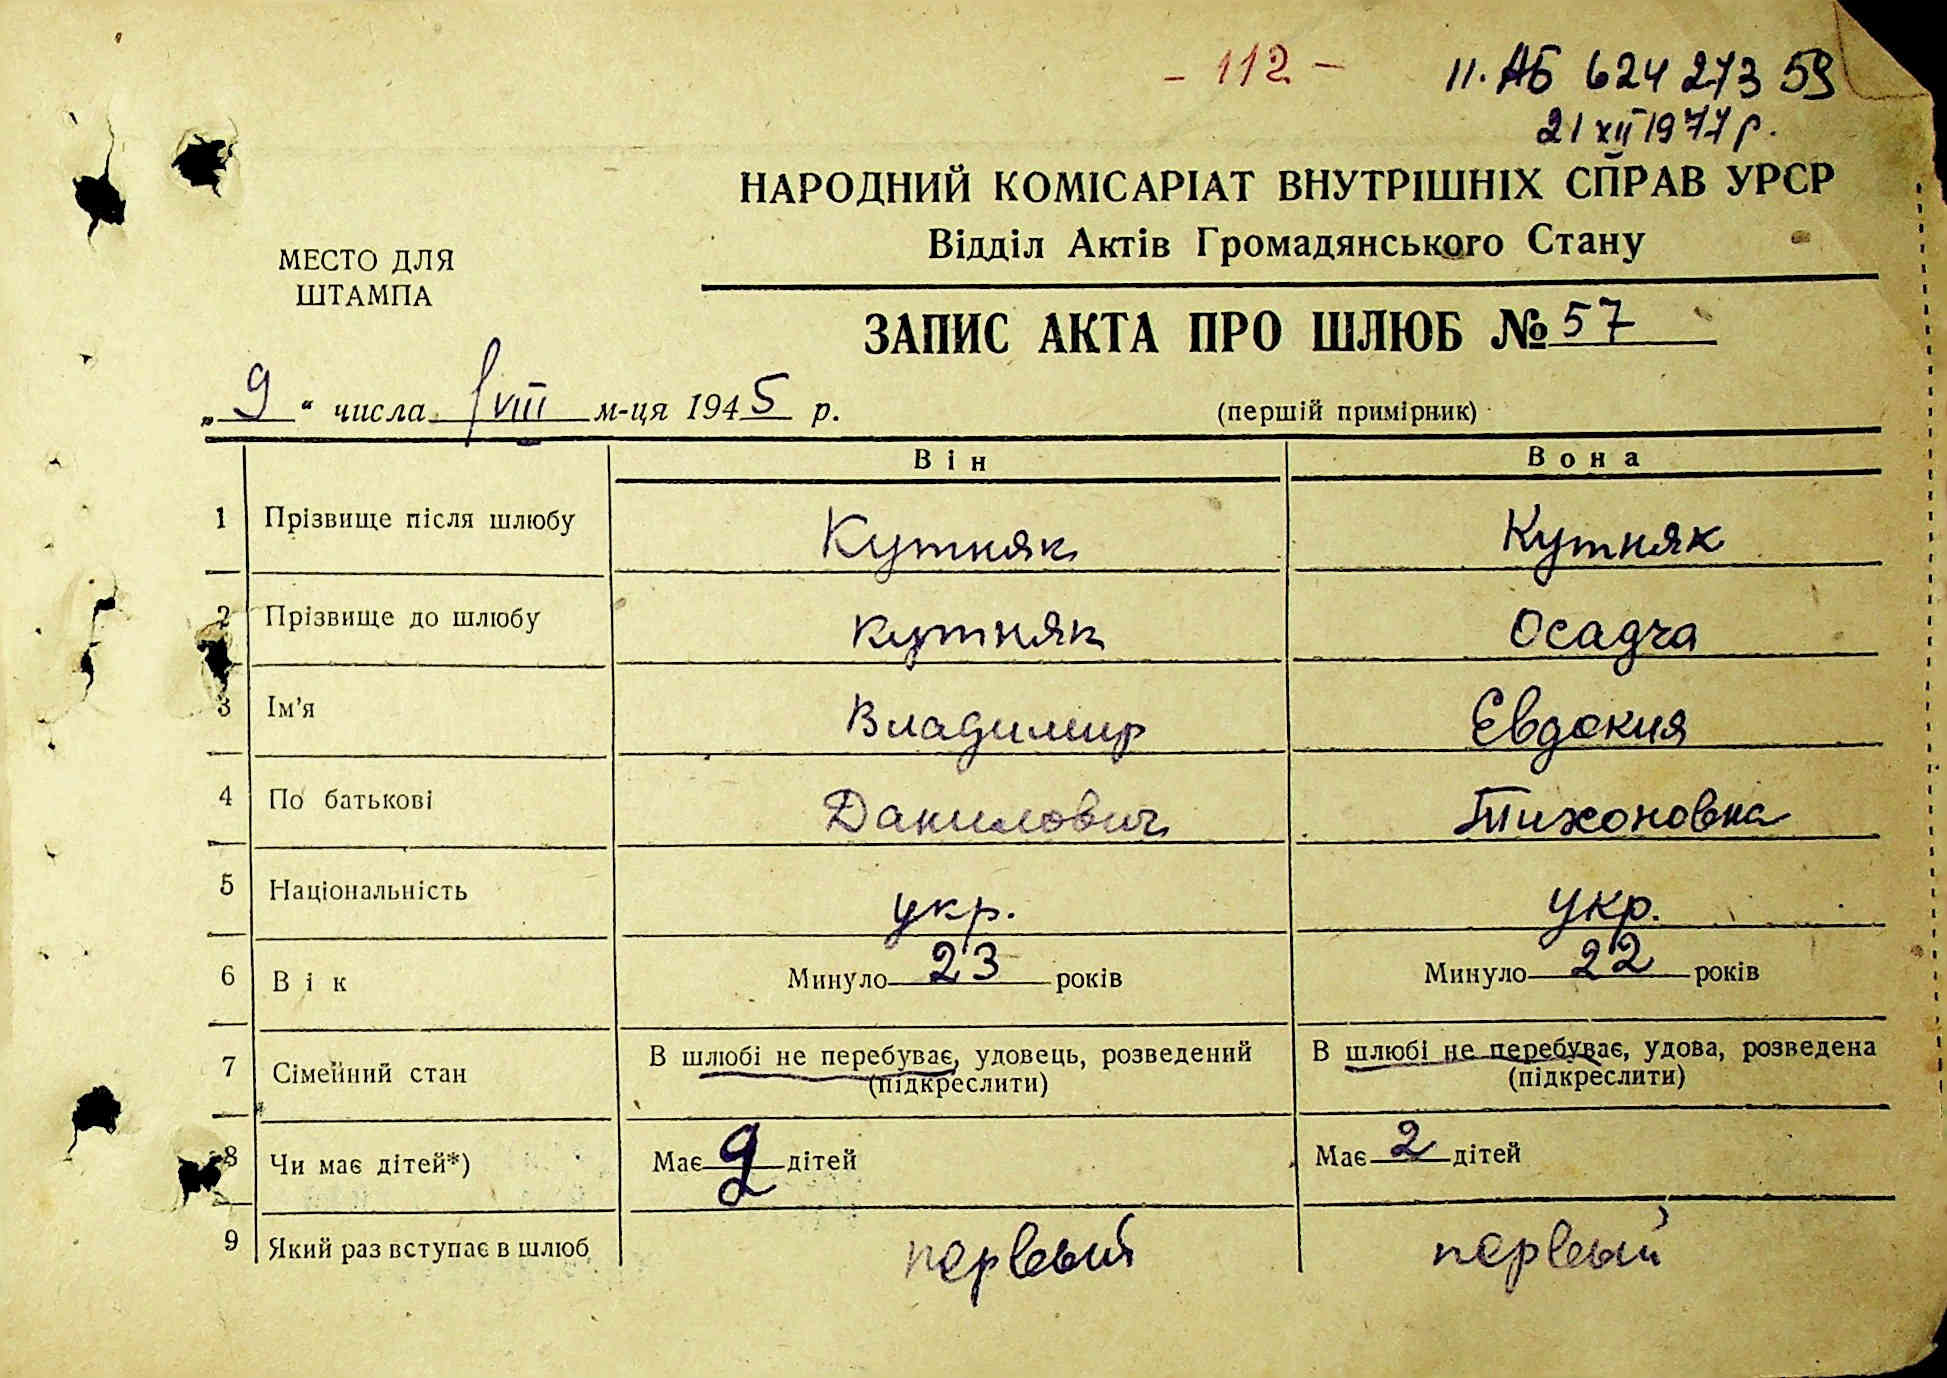 - 112 -
II. АБ 624 273 59
21 XII 1977 р.
НАРОДНИЙ КОМІСАРІАТ ВНУТРІШНІХ СПРАВ УРСР
Відділ Актів Громадянського Стану
МЕСТО ДЛЯ
ШТАМПА
ЗАПИС АКТА ПРО ШЛЮБ № 57
„9“ числа VIII м-ця 1945 р.
(першій примірник)
Він Вона
1 Прізвище після шлюбу Кутняк Кутняк
2 Прізвище до шлюбу Кутняк Осадча
3 Ім’я Владимир Євдокия
4 По батькові Данилович Тихоновна
5 Національність укр. укр.
6 Вік Минуло 23 років Минуло 22 років
7 Сімейний стан В шлюбі не перебуває, удовець, розведений В шлюбі не перебуває, удова, розведена
(підкреслити) (підкреслити)
8 Чи має дітей*) Має 2 дітей Має 2 дітей
9 Який раз вступає в шлюб первый первый